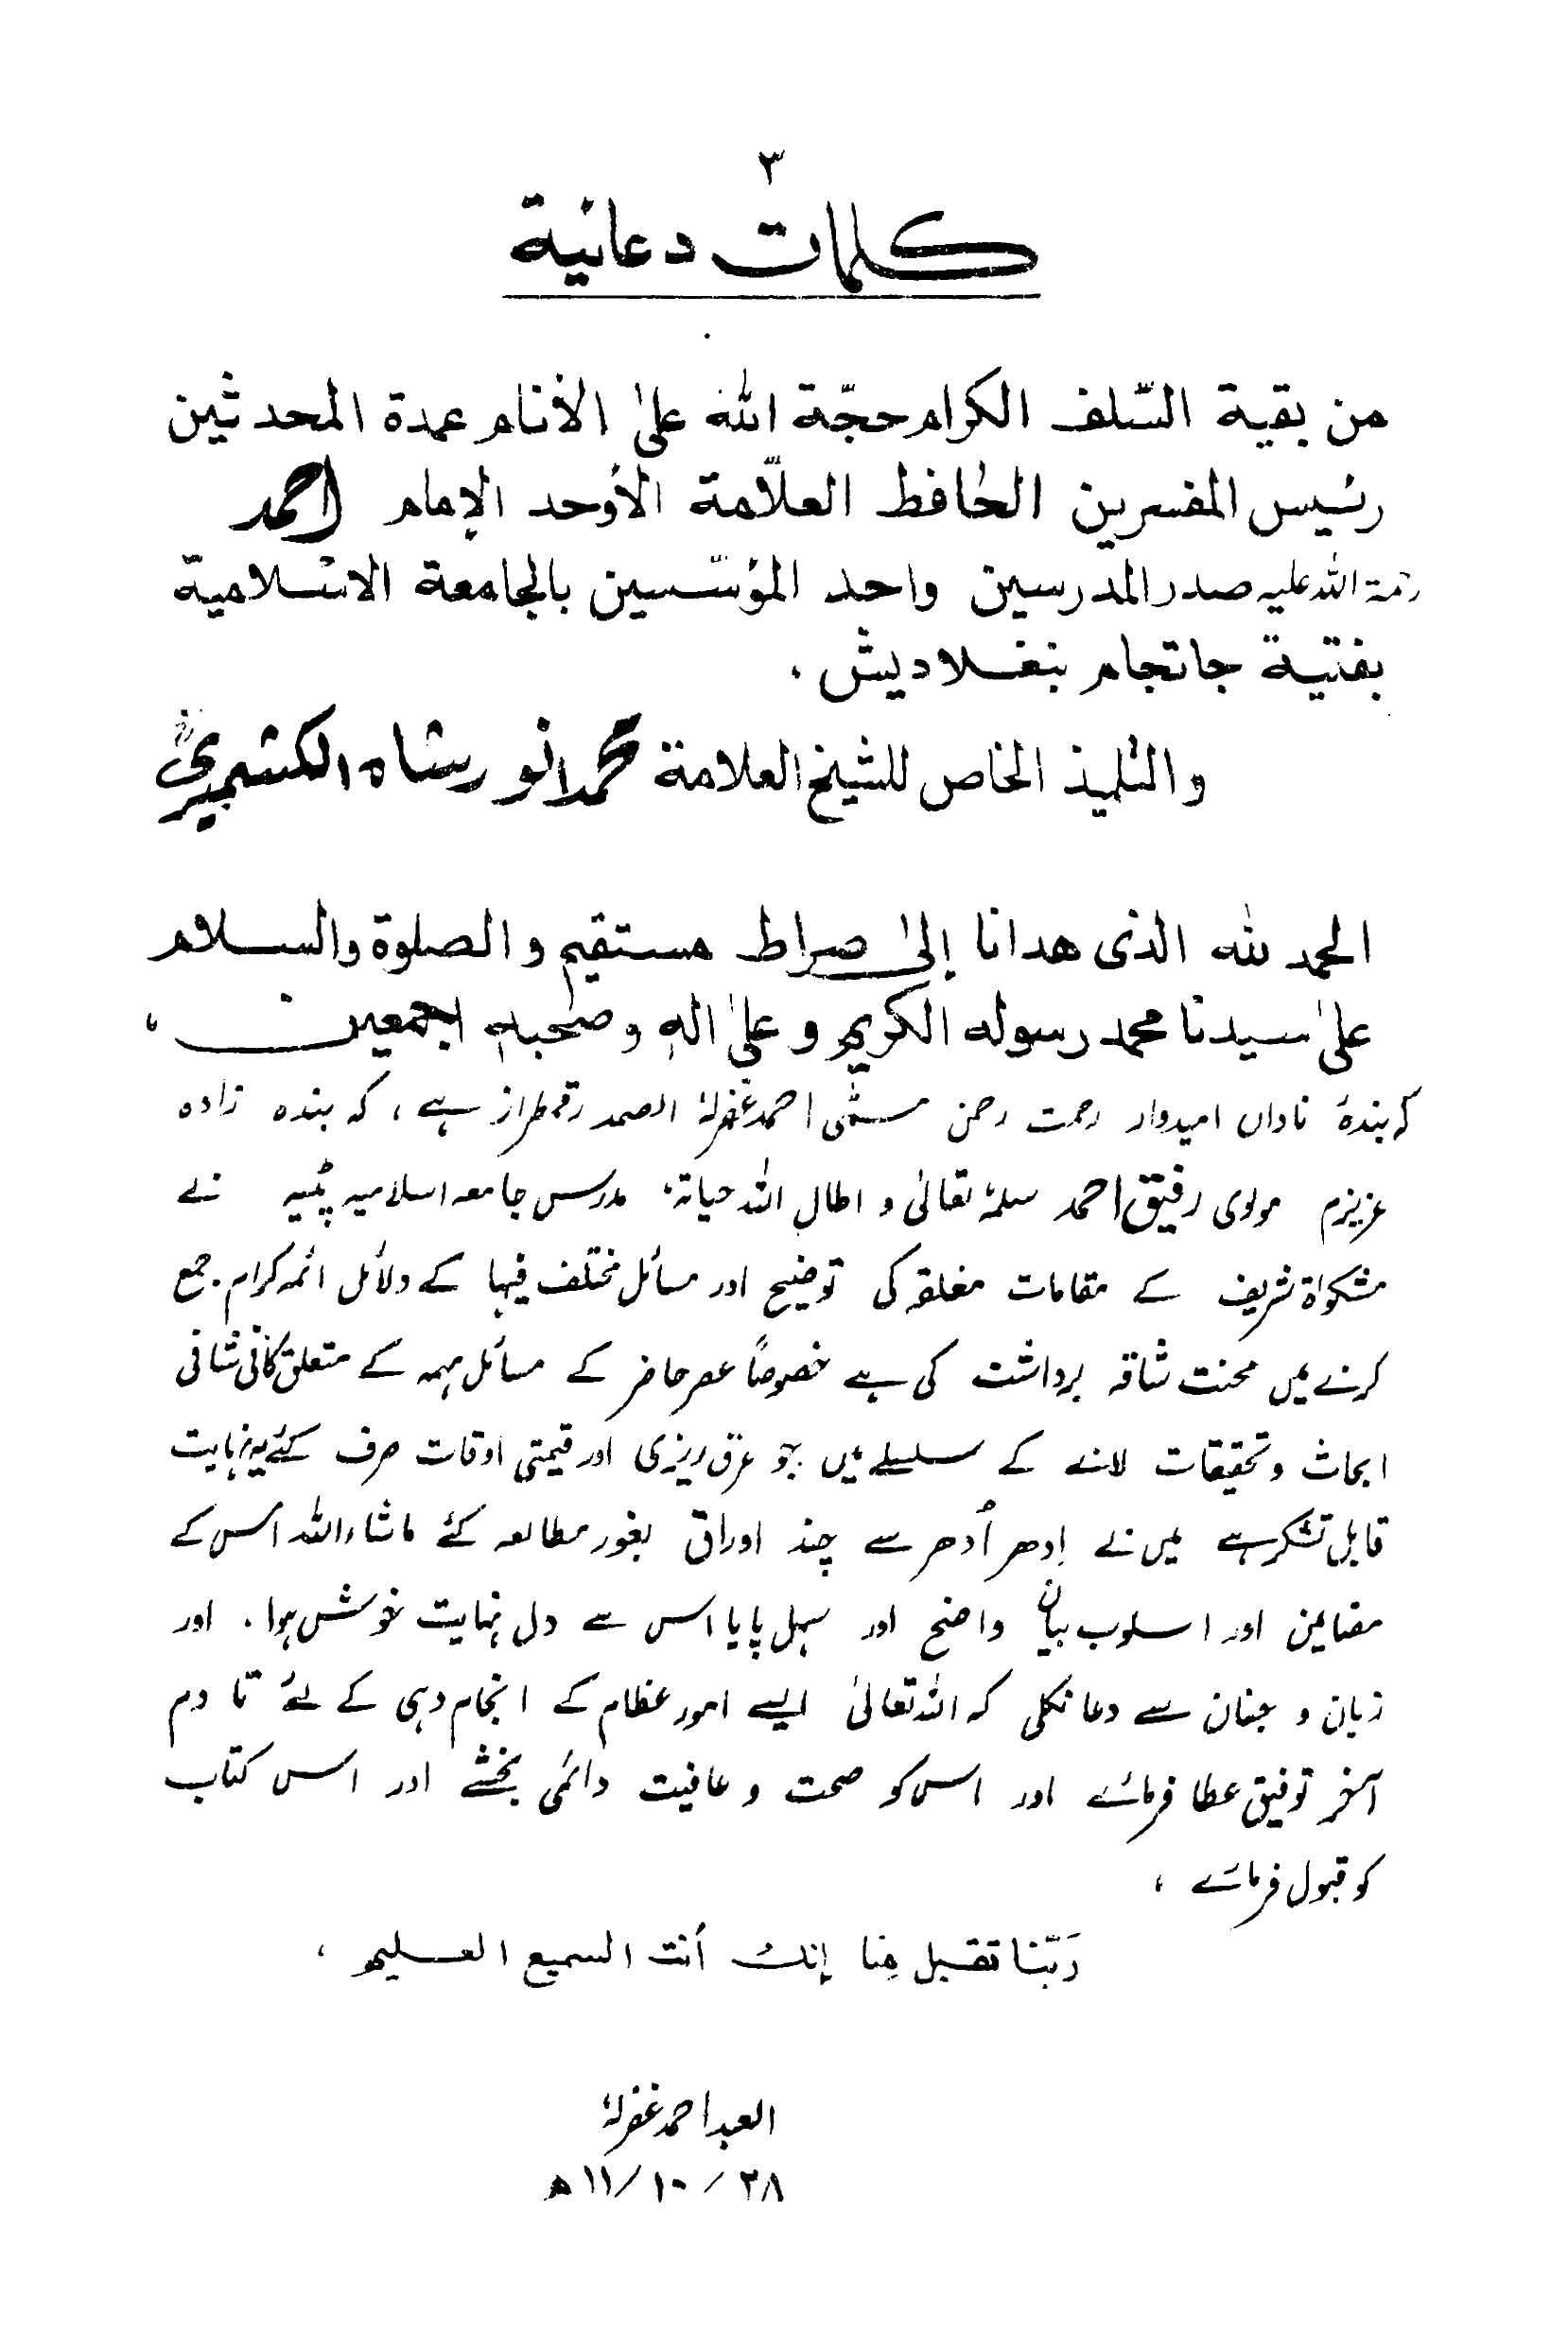 ٣
كلمات دعائية
من بقية السّلف الكرام حجّة الله علىٰ الأنام عمدة المحدثين
رئيس المفسرين الحافظ العلّامة الأوحد الإمام احمد
رحمة الله عليه صدر المدرسين واحد المؤسّسين بالجامعة الاسلامية
بفتية جاتجام بنغلاديش ،
والتلميذ الخاص للشيخ العلامة محمد انور شاه الكشميري
الحمد لله الذى هدانا إلىٰ صراط مستقيم والصلوة والسلام
علىٰ سيدنا محمد رسوله الكريم وعلىٰ اله وصحبه اجمعين ،
کہ بندۂ ناداں امیدوار رحمت رحمن مسمّٰی احمد غفرلہٗ الصمد رقمطراز ہے ، کہ بندہ زادہ
عزیزم مولوی رفیق احمد سلمہٗ تعالیٰ و اطال اللہ حیاتہٗ مدرس جامعہ اسلامیہ پٹیہ نے
مشکواۃ شریف کے مقامات مغلقہ کی توضیح اور مسائل مختلف فیہا کے دلائل ائمہ کرام جمع
کرنے میں محنت شاقہ برداشت کی ہے خصوصاً عصر حاضر کے مسائل مہمہ کے متعلق کافی شافی
ابحاث و تحقیقات لانے کے سلسلے میں جو عرق ریزی اور قیمتی اوقات صرف کئے یہ نہایت
قابل تشکر ہے میں نے اِدھر اُدھر سے چند اوراق بغور مطالعہ کئے ماشاء اللہ اس کے
مضامین اور اسلوب بیان واضح اور سہل پایا اس سے دل نہایت خوش ہوا ۔ اور
زبان و جنان سے دعا نکلی کہ اللہ تعالیٰ ایسے امور عظام کے انجام دہی کے لئے تا دم
آخر توفیق عطا فرمائے اور اس کو صحت و عافیت دائمی بخشے اور اس کتاب
کو قبول فرمائے ،
رَبّنا تقبل مِنا إنك أنت السميع العليم ،
العبد احمد غفرلہٗ
٢٨ / ١٠ / ١١ھ